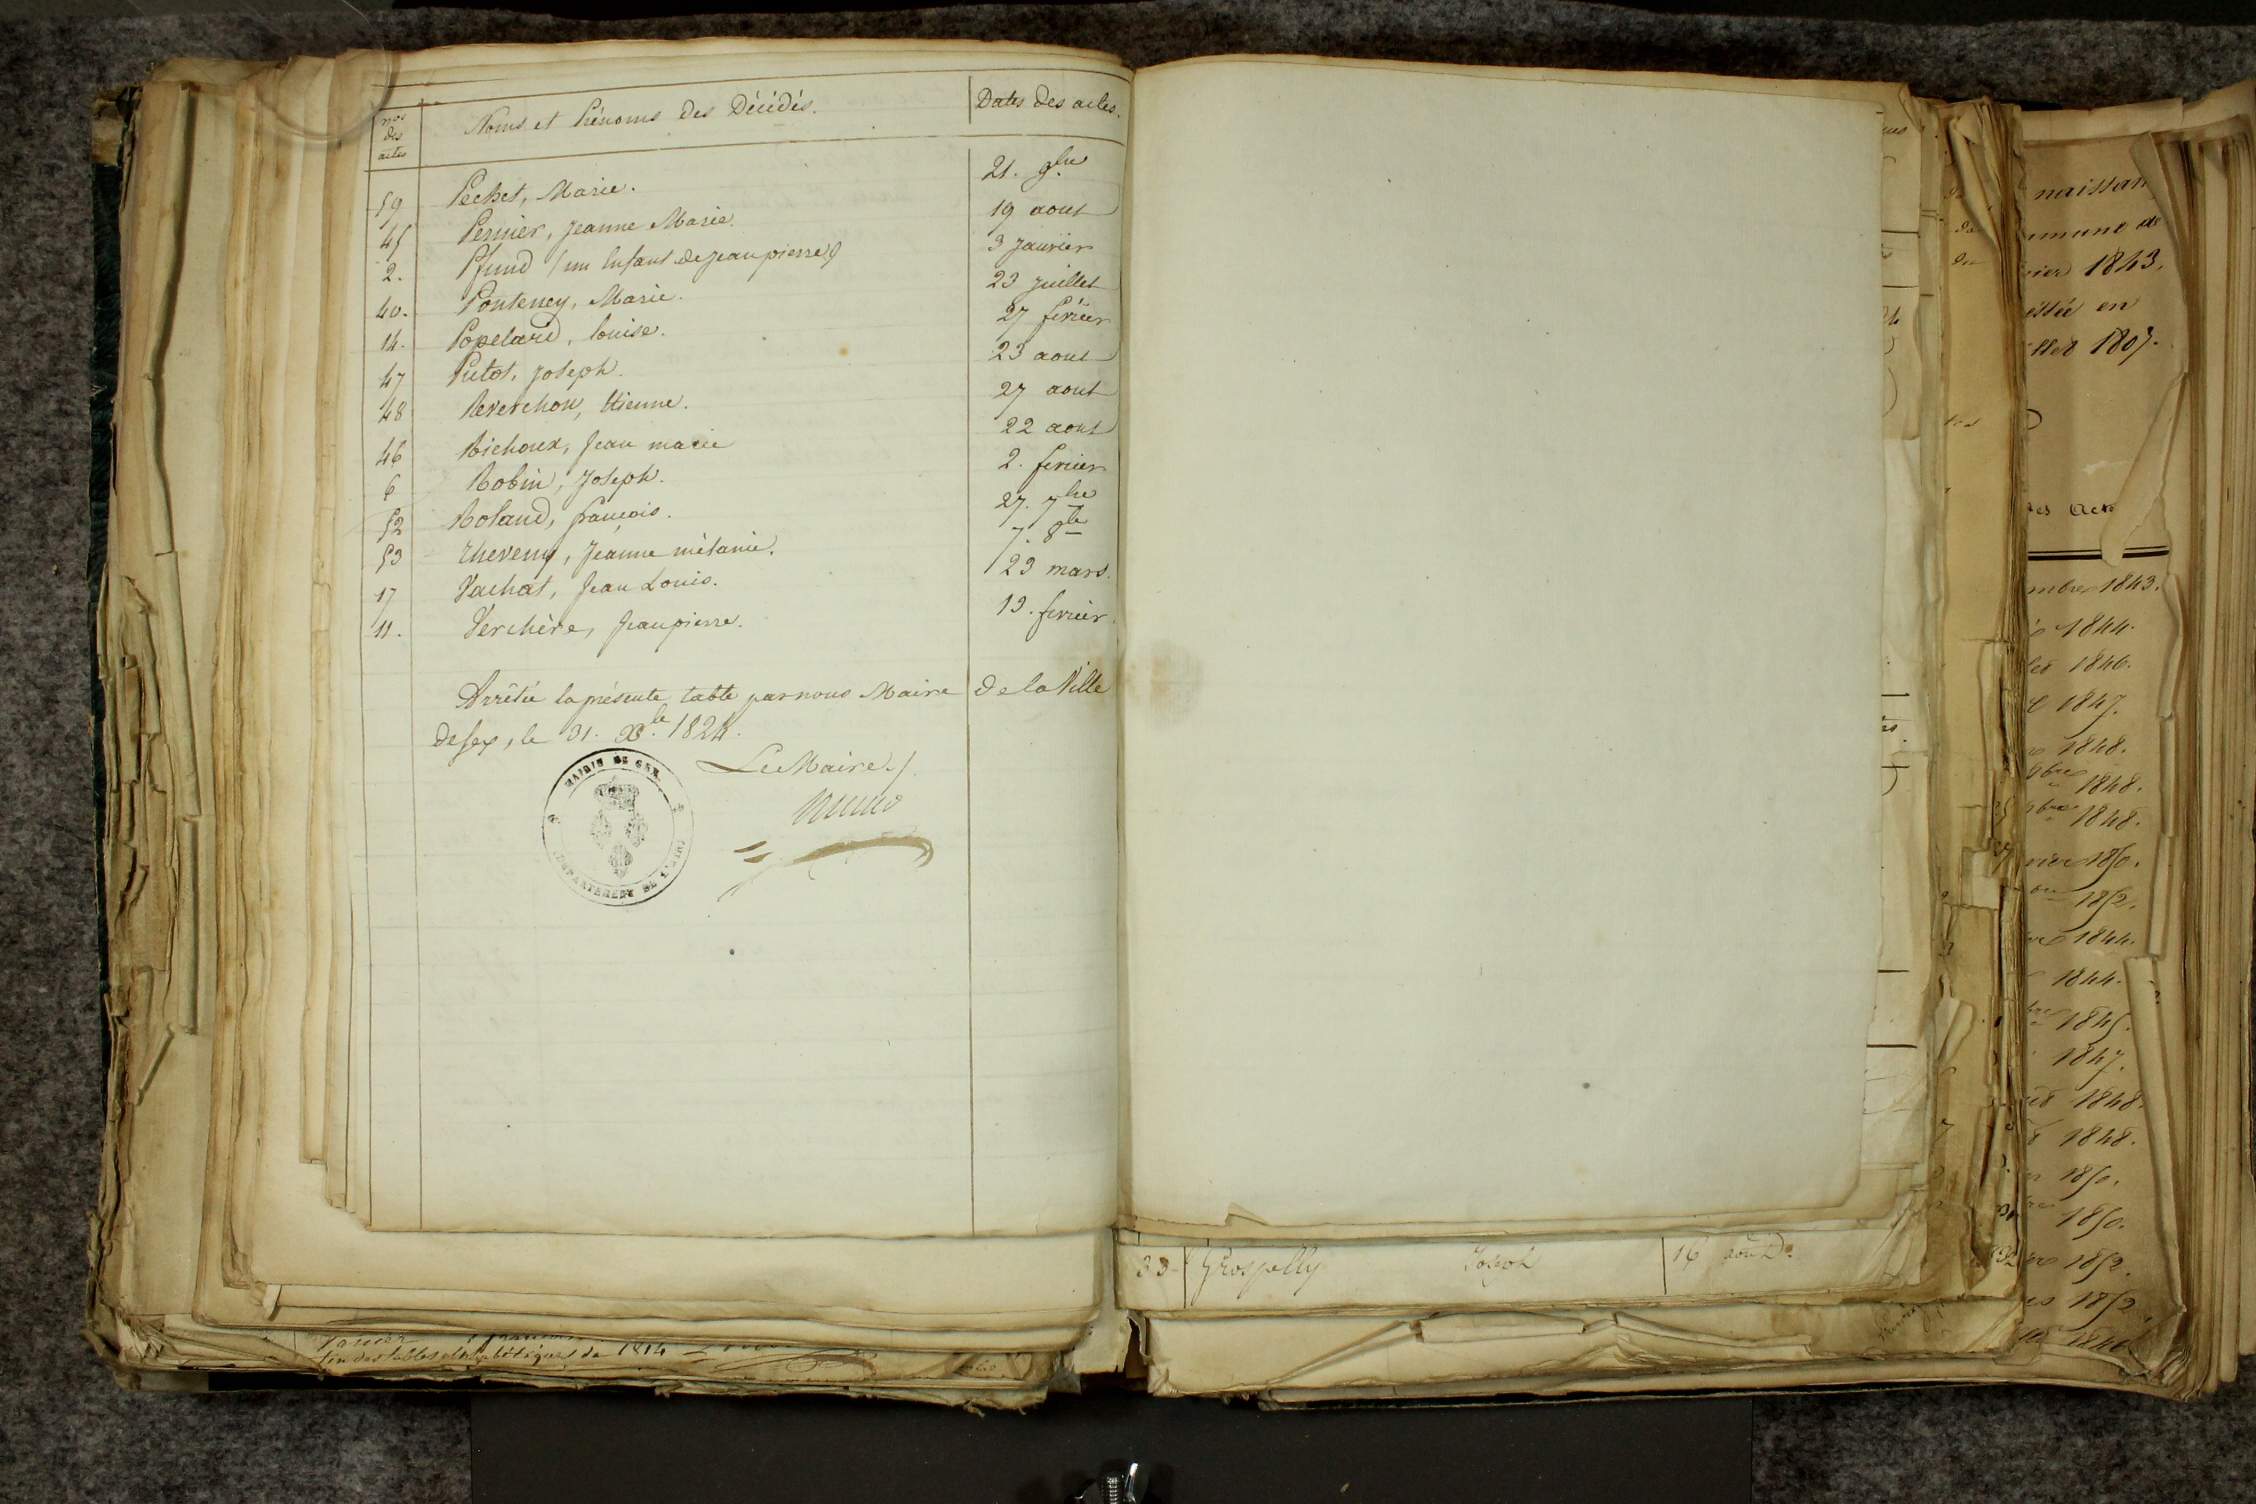 nos des actes | Noms et Prénoms des Décédés. | Dates des actes.
59 Pechet, Marie. 21. 9bre
45 Pernier, Jeanne Marie. 19 aout
2. Pfund (un Enfant de Jean pierre) 3 Janvier
40. Ponteney, Marie. 23 Juillet
14. Popelard, louise. 27 février
47 Putot, Joseph. 23 aout
48 Reverchon, Etienne. 27 aout
46 Richoux, Jean marie 22 aout
6 Robin, Joseph. 2. fevrier
52 Roland, françois. 27. 7bre
53 Theveny, Jeanne mélanie. 7. 8bre
17 Vachat, Jean Louis. 23 mars.
11. Verchère, Jean pierre. 13. fevrier.
Arrêtée la présente table par nous Maire de la Ville
de Gex, le 31. Xbre. 1824.
Le Maire./.
MAIRIE DE GEX.
DEPARTEMENT DE L'AIN
33 Grospelly Joseph 16 août.
fin des tables alphabétiques de 1814
naissan
mmune de
vrier 1843.
en
1807.
des Acte
mbre 1843.
1844.
1846.
1847.
1848.
9bre 1848.
9bre 1848.
1850.
1852.
1844.
1844.
1845.
1847.
1848.
1848.
1850.
1850.
1852.
1852.
1846